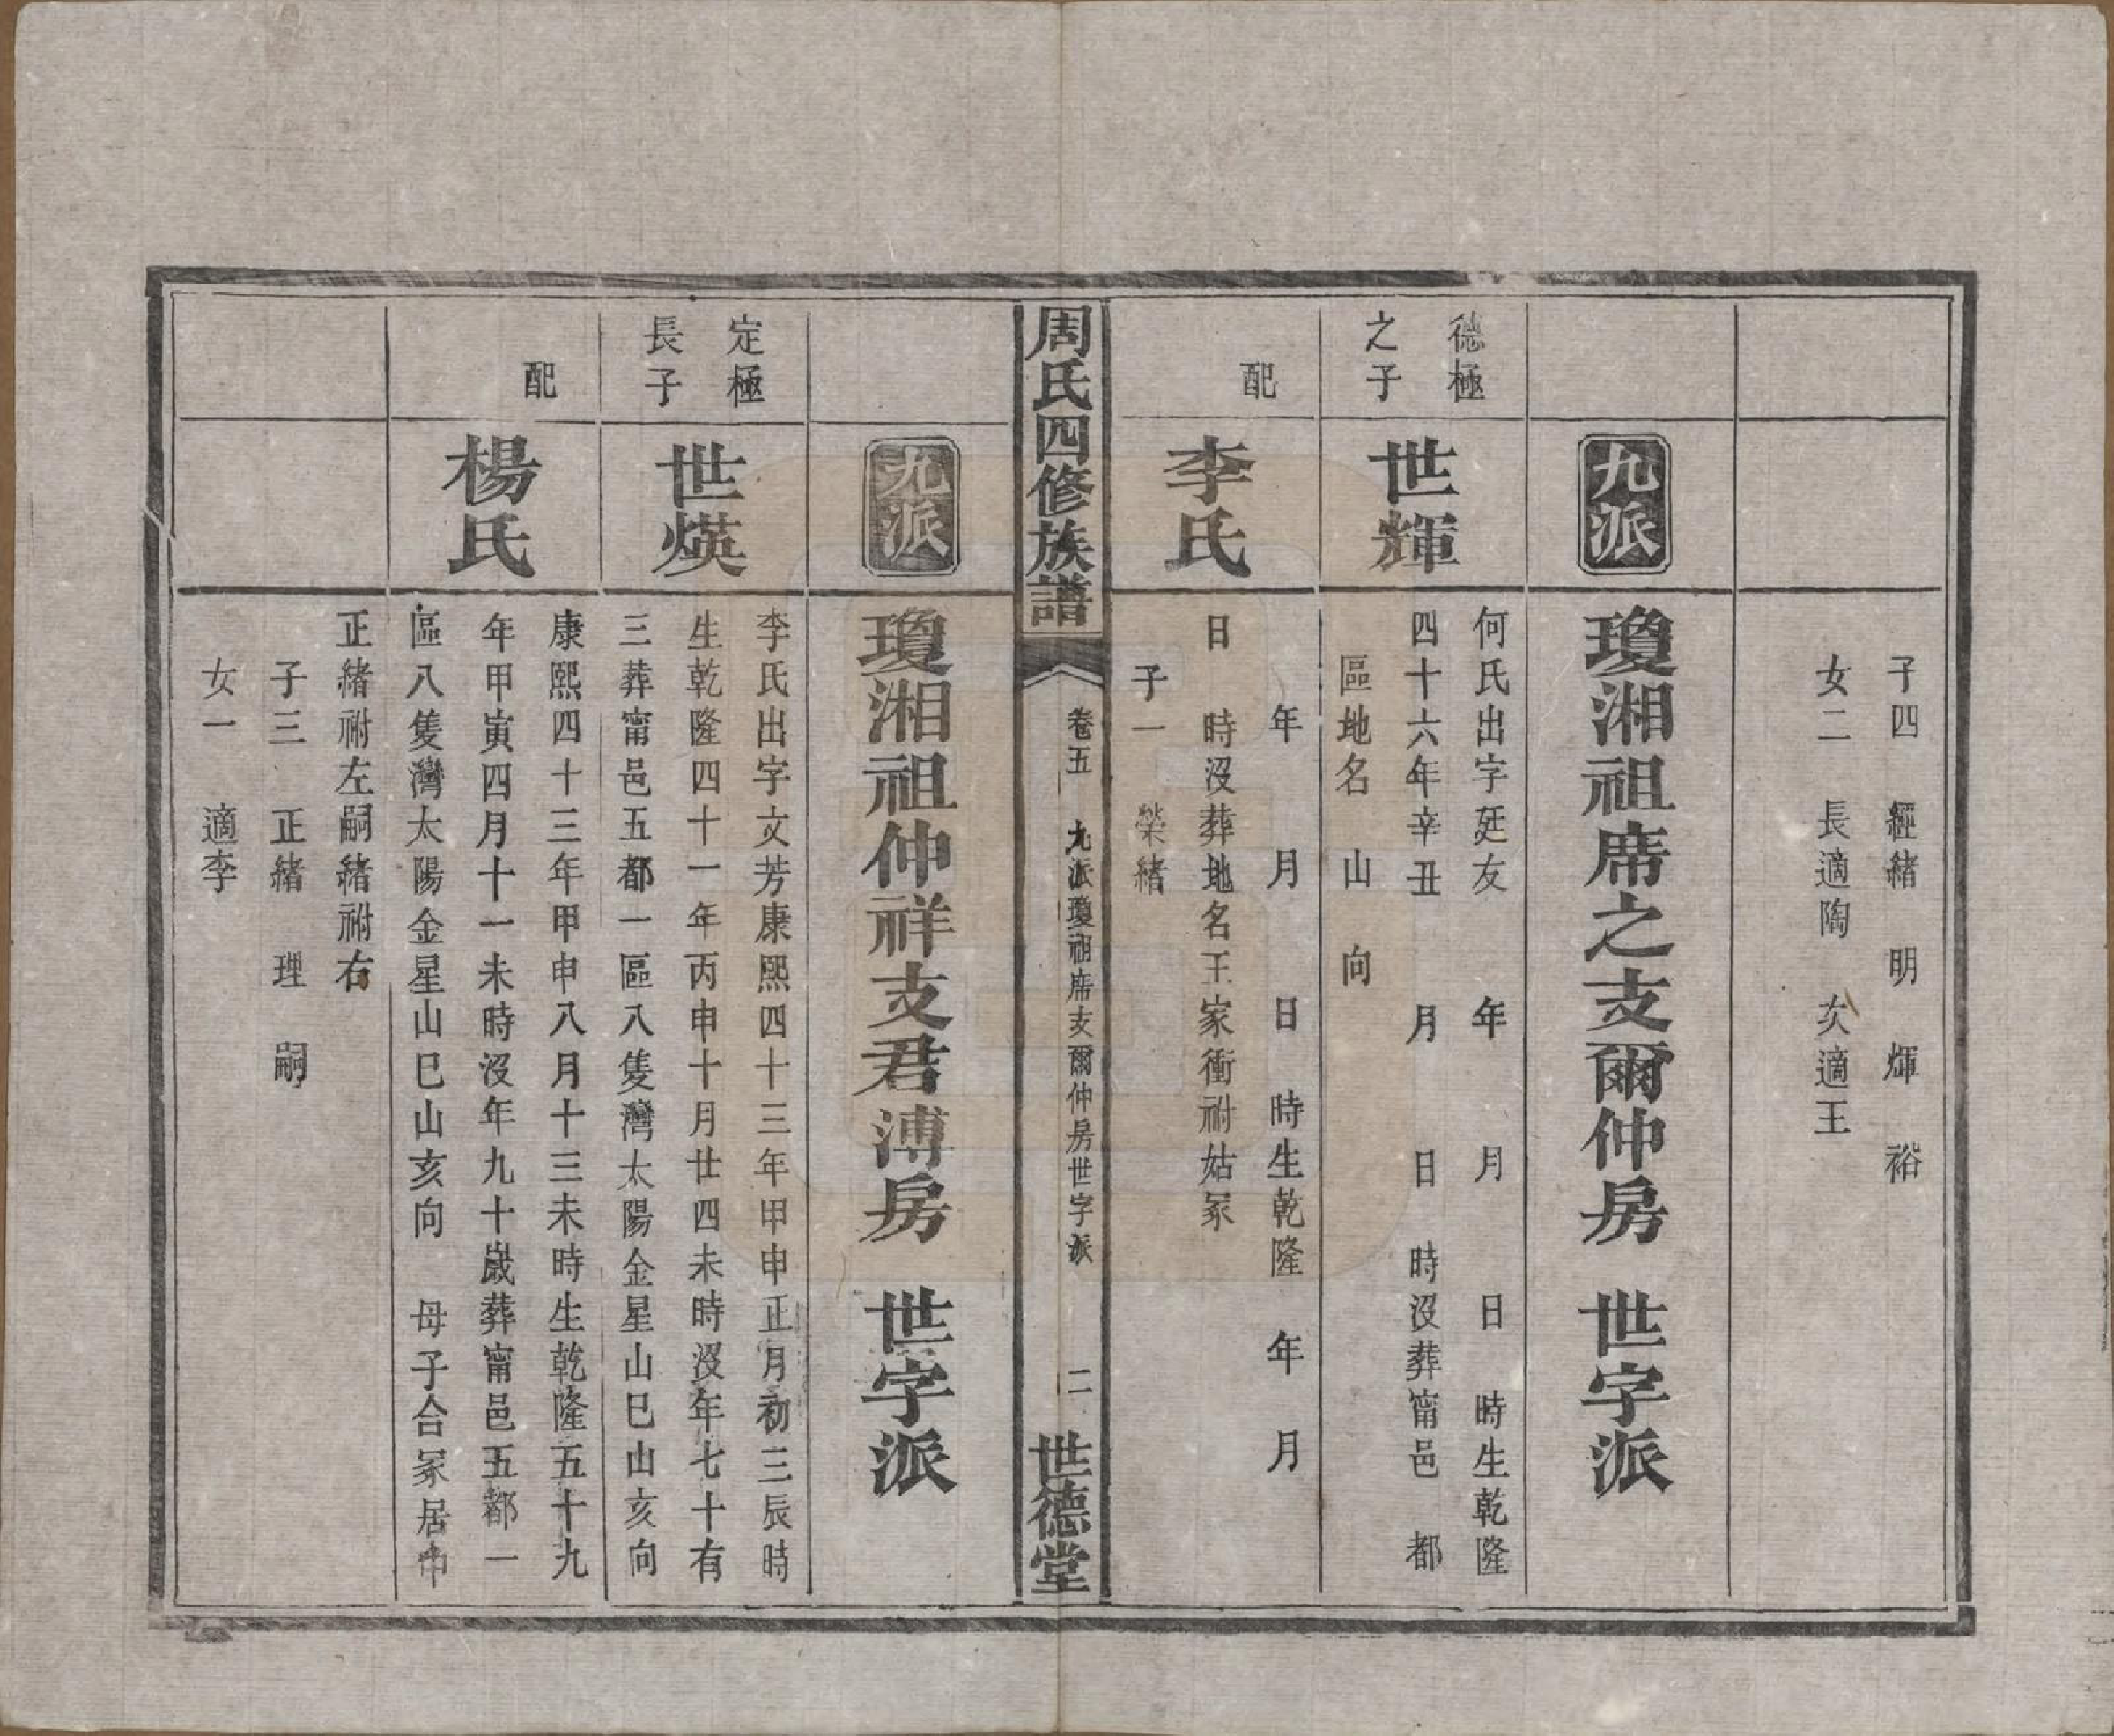 子四 經緒 明 煇 裕
女二 長適陶 次適王
九派
瓊湘祖席之支爾仲房 世字派
德極
之子
世輝
何氏出字廷友 年 月 日 時生乾隆
四十六年辛丑 月 日 時沒葬甯邑 都
區地名 山 向
配
李氏
年 月 日 時生乾隆 年 月
日 時沒葬地名王家衝祔姑冢
子一 榮緒
周氏四修族譜
卷五 九派瓊祖席支爾仲房世字派 二
世德堂
九派
瓊湘祖仲祥支君溥房 世字派
定極
長子
世煐
李氏出字文芳康熙四十三年甲申正月初三辰時
生乾隆四十一年丙申十月廿四未時沒年七十有
三葬甯邑五都一區八隻灣太陽金星山巳山亥向
配
楊氏
康熙四十三年甲申八月十三未時生乾隆五十九
年甲寅四月十一未時沒年九十歲葬甯邑五都一
區八隻灣太陽金星山巳山亥向 母子合冢居中
正緒祔左嗣緒祔右
子三 正緒 理 嗣
女一 適李